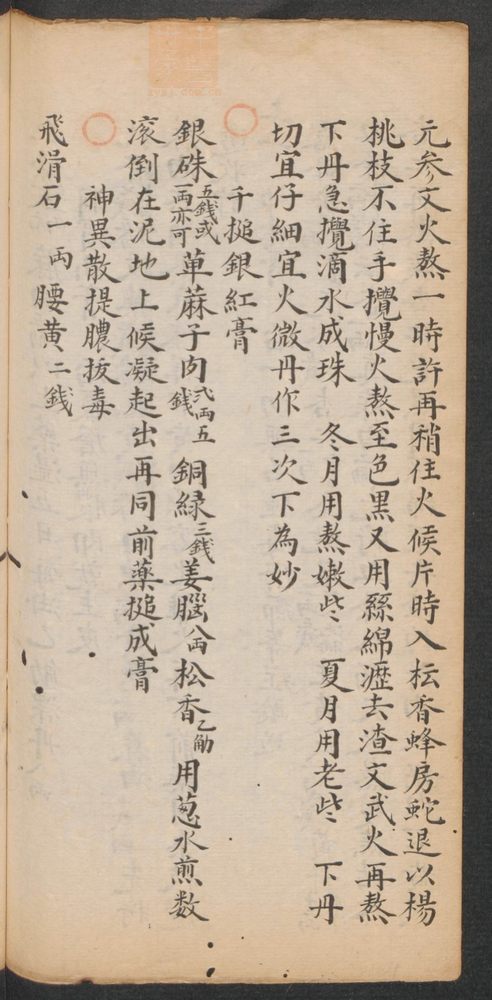 元参文火熬一時許再稍住火候片時入枟香蜂房蛇退以楊
桃枝不住手攪慢火熬至色黑又用絲綿瀝去渣文武火再熬
下丹急攪滴水成珠 冬月用熬嫩些 夏月用老些 下丹
切宜仔細宜火微丹作三次下為妙
千搥銀紅膏
銀硃五錢或一両亦可萆蔴子肉弍両五錢 銅緑三錢姜腦八両松香乙觔 用葱水煎数
滚倒在泥地上候凝起出再同前藥搥成膏
神異散提膿拔毒
飛滑石一両 腰黄二錢